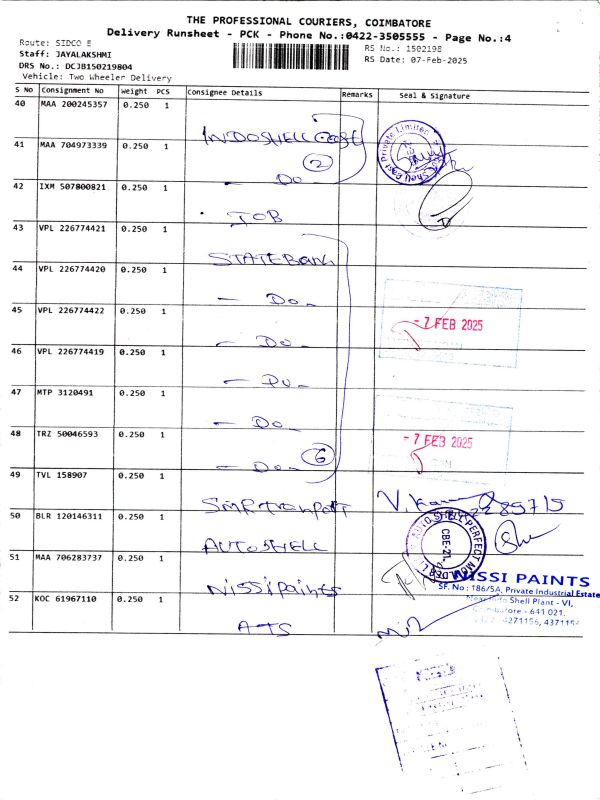 THE PROFESSIONAL COURIERS, COIMBATORE
Delivery Runsheet - PCK - Phone No.:0422-3505555 - Page No.:4
Route: SIDCO E
RS No.: 1502198
Staff: JAYALAKSHMI
RS Date: 07-Feb-2025
DRS No.: DCJB150219804
Vehicle: Two Wheeler Delivery
S No Consignment No Weight PCS Consignee Details Remarks Seal & Signature
40 MAA 200245357 0.250 1 INDOSHELL Cast
41 MAA 704973339 0.250 1 - Do - 2
42 IXM 507800821 0.250 1 IOB
43 VPL 226774421 0.250 1 STATE Bank
44 VPL 226774420 0.250 1 - Do -
45 VPL 226774422 0.250 1 - Do -
- 7 FEB 2025
46 VPL 226774419 0.250 1 - Do -
47 MTP 3120491 0.250 1 - Do -
48 TRZ 50046593 0.250 1 - Do - 6
- 7 FEB 2025
49 TVL 158907 0.250 1 SMP tranport
50 BLR 120146311 0.250 1 AUTOSHELL
AUTO SHELL PERFECT MOULDERS
CBE-21.
51 MAA 706283737 0.250 1 Nissi paints
NISSI PAINTS
SF. No : 186/5A, Private Industrial Estate
Shell Plant - VI,
Coimbatore - 641 021.
4271156,
52 KOC 61967110 0.250 1 ATS